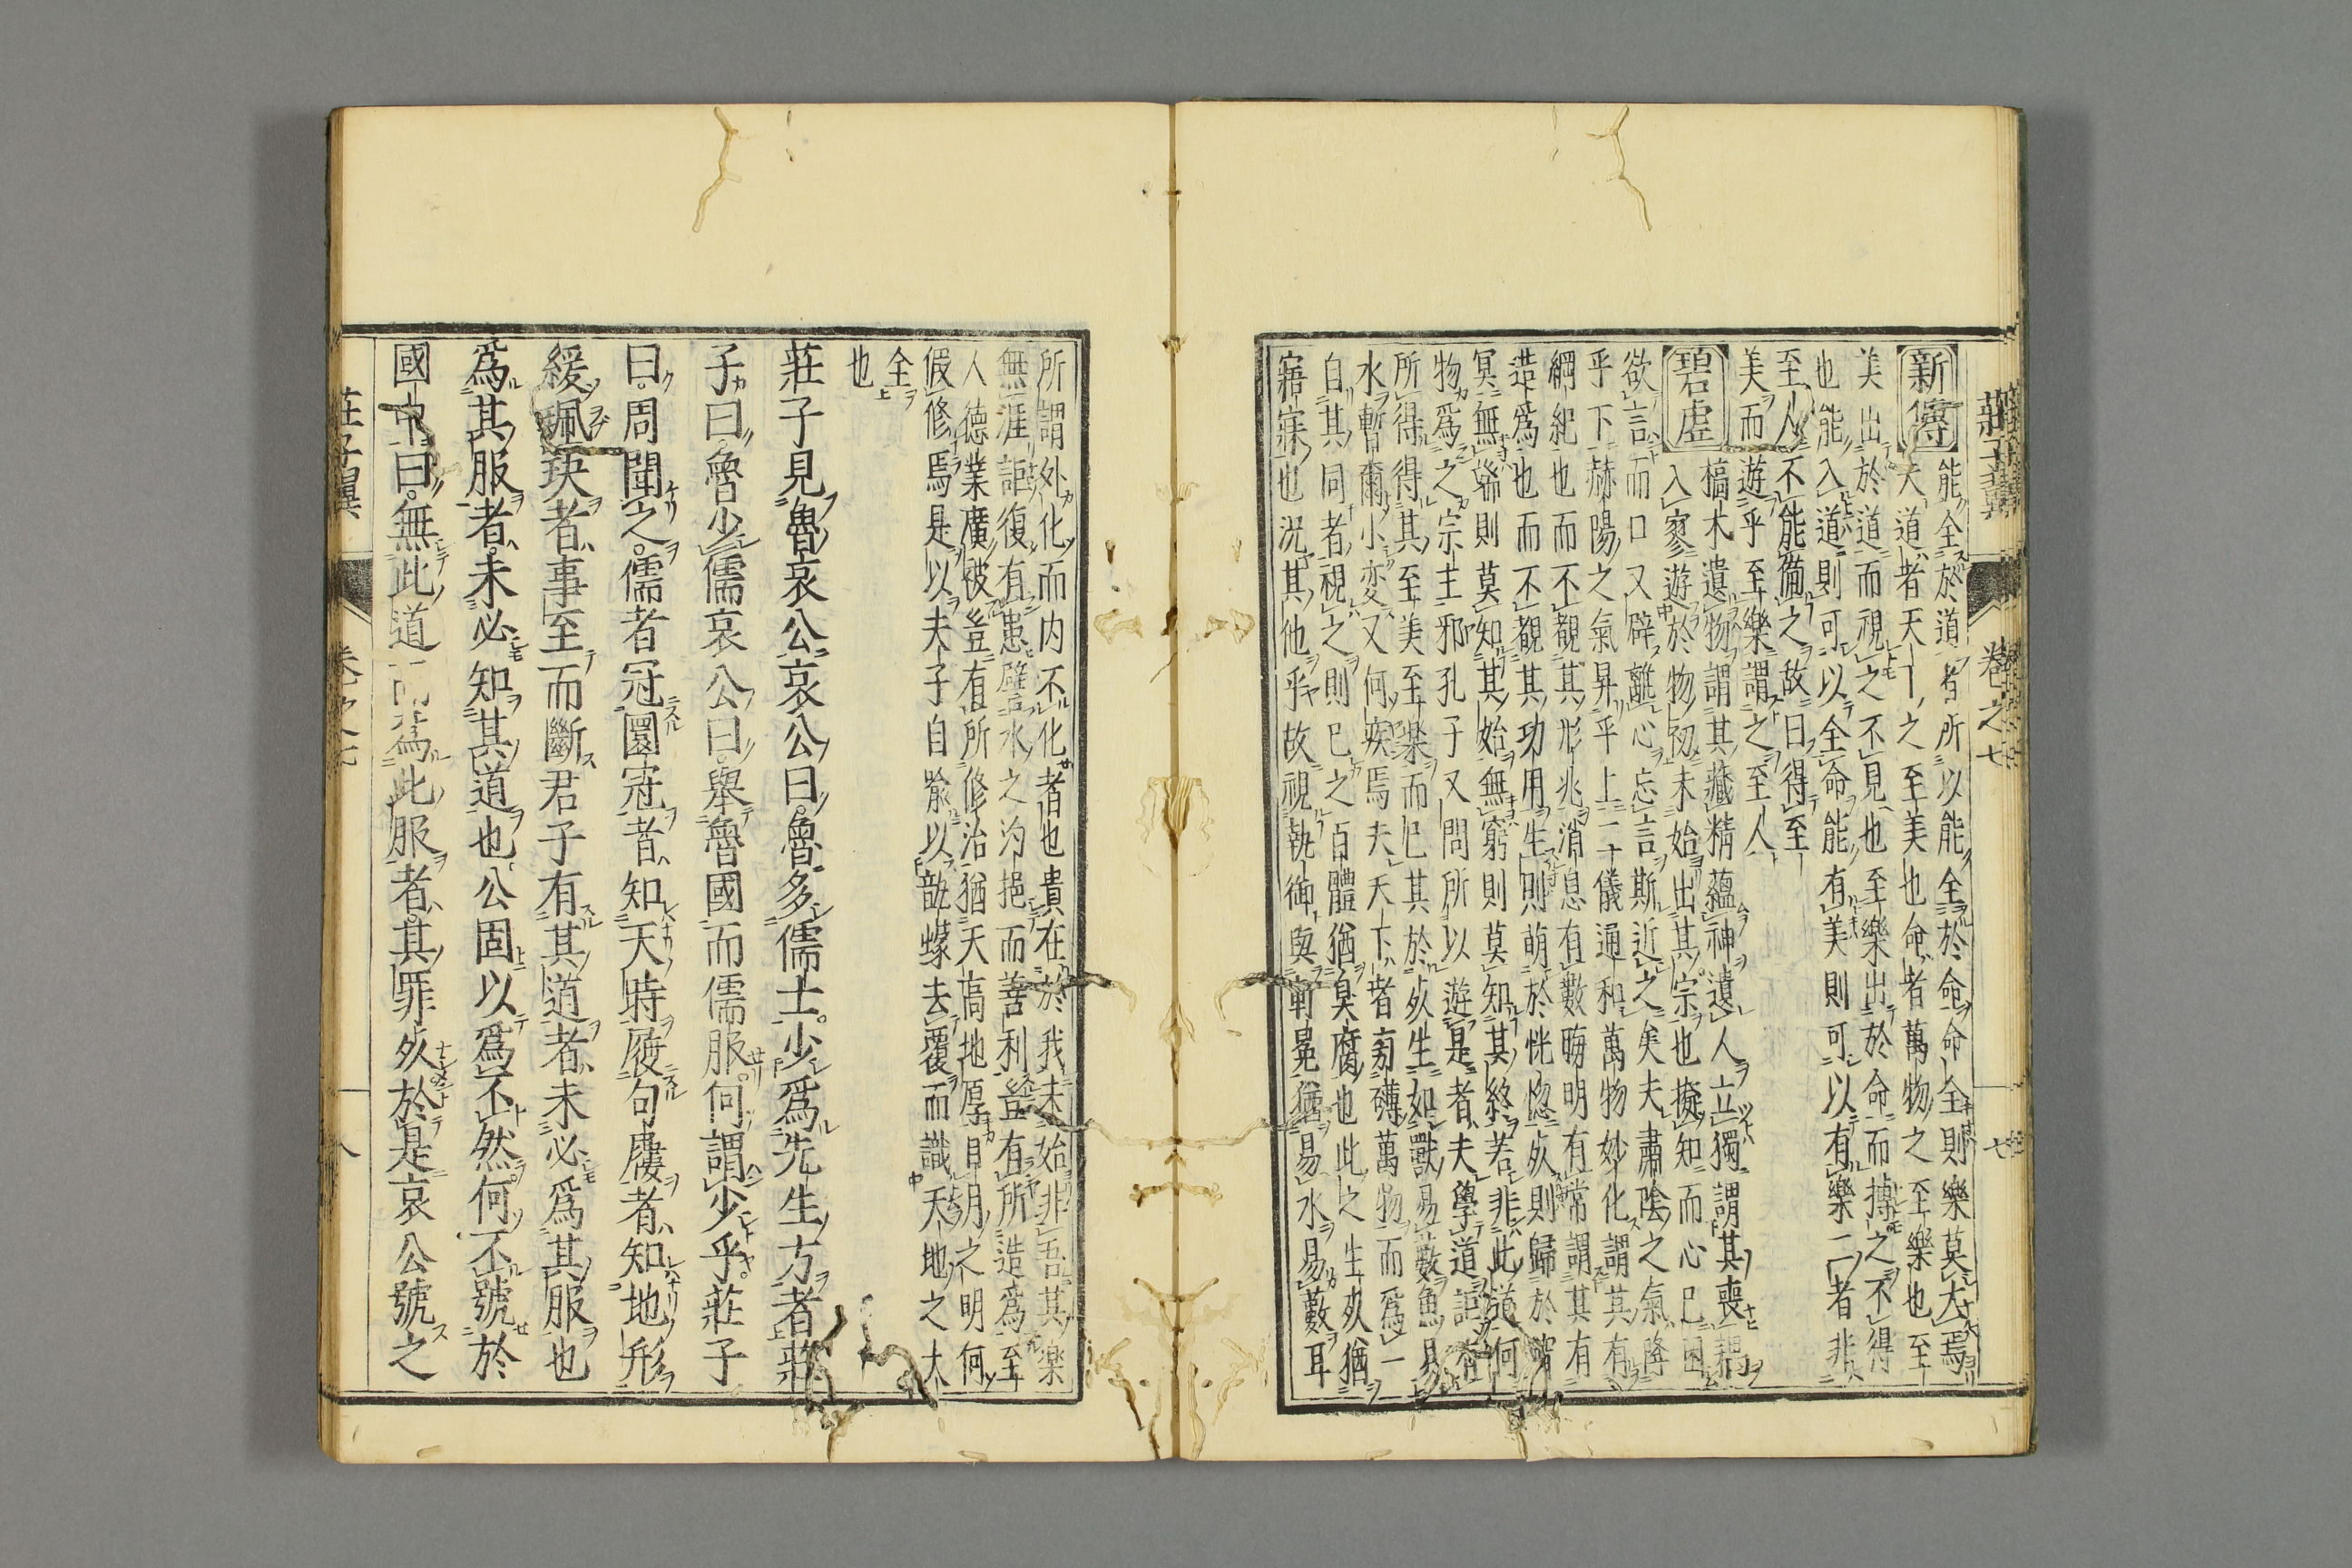 莊子翼 卷之七 七
新傳
能全於道者所以能全於命命全則樂莫大焉
夫道者天下之至美也命者萬物之至樂也至
美出於道而視之不見也至樂出於命而摶之不得
也能入道則可以全命能有美則可以有樂二者非
至人不能備之故曰得至
美而遊乎至樂謂之至人
碧虛
槁木遺物謂其藏精蘊神遺人立獨謂其喪耦
入寥遊於物初未始出其宗也擬知而心已困
欲言而口又辟離心忘言斯近之矣夫肅陰之氣降
乎下赫陽之氣昇乎上二儀通和萬物妙化謂其有
綱紀也而不覩其形兆消息有數晦明有常謂其有
造爲也而不覩其功用生則萌於恍惚死則歸於窅
冥無端則莫知其始無窮則莫知其終若非此道何
物爲之宗主邪孔子又問所以遊是者夫學道詎
所得得其至美至樂而已其於死生如獸易藪魚易
水暫爾小変又何疾焉夫天下者旁礴萬物而爲一
自其同者視之則已之百體猶臭腐也此之生死猶
寤寐也況其他乎故視執御與軒冕猶易水易藪耳
所謂外化而内不化者也貴在於我未始非吾其樂
無涯詎復有患譬水之汋挹而善利豈有所造爲至
人德業廣被豈有所修治猶天高地厚日月之明何
假修焉是以夫子自喩以醢蠓去覆而識天地之大
全
也
莊子見魯哀公哀公曰魯多儒士少爲先生方者莊
子曰魯少儒哀公曰舉魯國而儒服何謂少乎莊子
曰周聞之儒者冠圜冠者知天時履句屨者知地形
緩珮玦者事至而斷君子有其道者未必爲其服也
爲其服者未必知其道也公固以爲不然何不號於
國中曰無此道而爲此服者其罪死於是哀公號之
莊子翼 卷之七 八